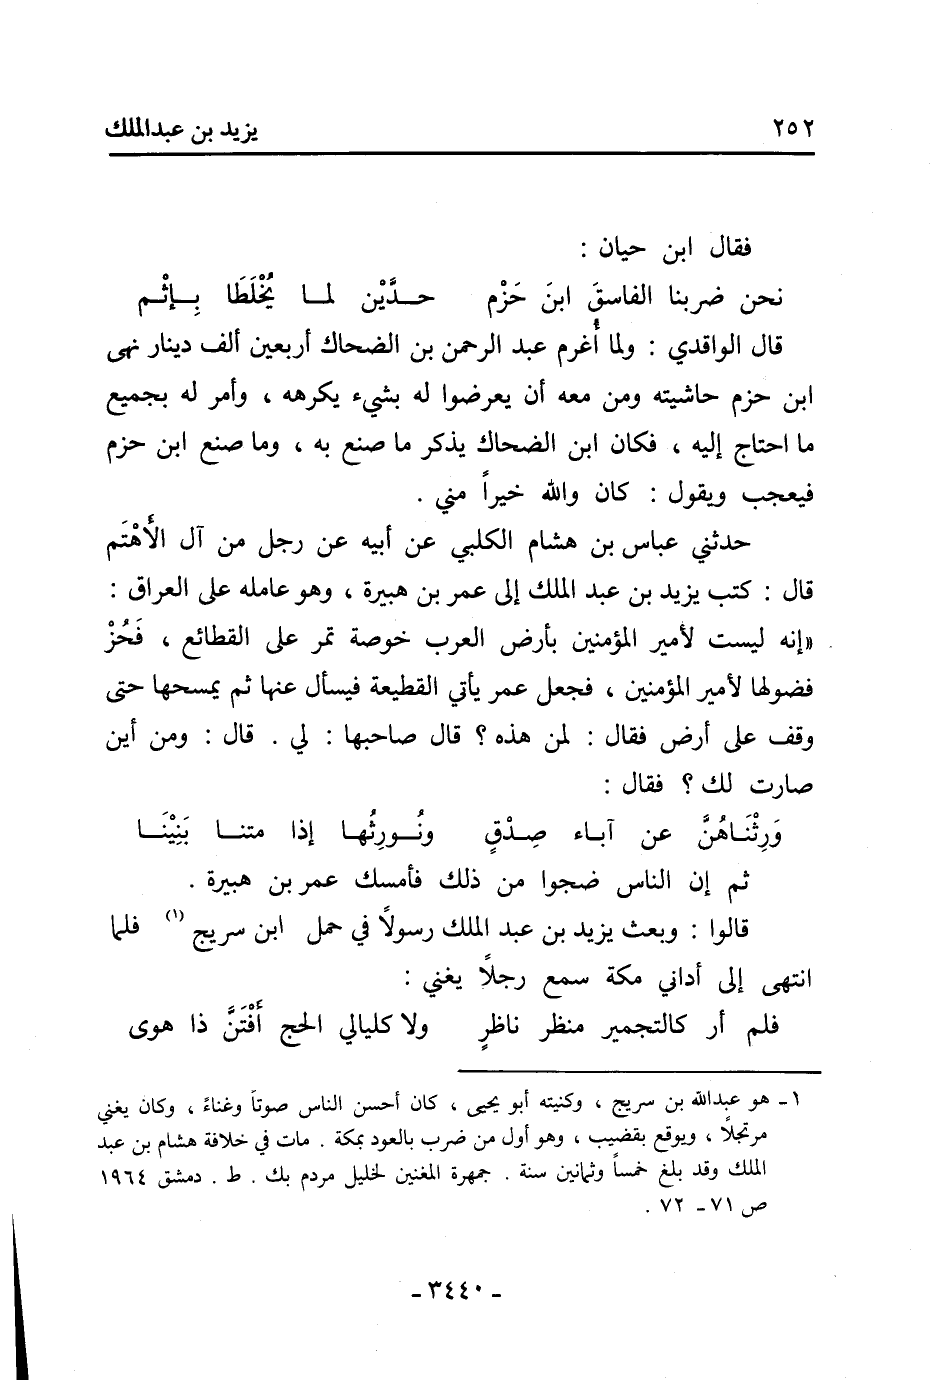 ٢٥٢ يزيد بن عبدالملك
فقال ابن حيان :
نحن ضربنا الفاسقَ ابنَ حَزْم حــدَّيْن لمــا يُخْلَطَا بِــإثْــم
قال الواقدي : ولما أُغرم عبد الرحمن بن الضحاك أربعين ألف دينار نهى
ابن حزم حاشيته ومن معه أن يعرضوا له بشيء يكرهه ، وأمر له بجميع
ما احتاج إليه ، فكان ابن الضحاك يذكر ما صنع به ، وما صنع ابن حزم
فيعجب ويقول : كان والله خيراً مني .
حدثني عباس بن هشام الكلبي عن أبيه عن رجل من آل الأَهْتَم
قال : كتب يزيد بن عبد الملك إلى عمر بن هبيرة ، وهو عامله على العراق :
«إنه ليست لأمير المؤمنين بأرض العرب خوصة تمر على القطائع ، فَحُزْ
فضولها لأمير المؤمنين ، فجعل عمر يأتي القطيعة فيسأل عنها ثم يمسحها حتى
وقف على أرض فقال : لمن هذه ؟ قال صاحبها : لي . قال : ومن أين
صارت لك ؟ فقال :
وَرِثْنَاهُنَّ عن آبــاء صِــدْقٍ ونُــورِثُهــا إذا متنــا بَنِيْنَــا
ثم إن الناس ضجوا من ذلك فأمسك عمر بن هبيرة .
قالوا : وبعث يزيد بن عبد الملك رسولاً في حمل ابن سريج (١) فلما
انتهى إلى أداني مكة سمع رجلاً يغني :
فلم أر كالتجمير منظر ناظرٍ ولا كليالي الحج أَفْتَنَّ ذا هوى
١ـ هو عبدالله بن سريج ، وكنيته أبو يحيى ، كان أحسن الناس صوتاً وغناءً ، وكان يغني
مرتجلاً ، ويوقع بقضيب ، وهو أول من ضرب بالعود بمكة . مات في خلافة هشام بن عبد
الملك وقد بلغ خمساً وثمانين سنة . جمهرة المغنين لخليل مردم بك . ط . دمشق ١٩٦٤
ص ٧١ـ ٧٢ .
ـ ٣٤٤٠ ـ